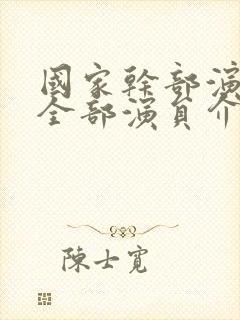 國家幹部演
全部演員介
陳士寬